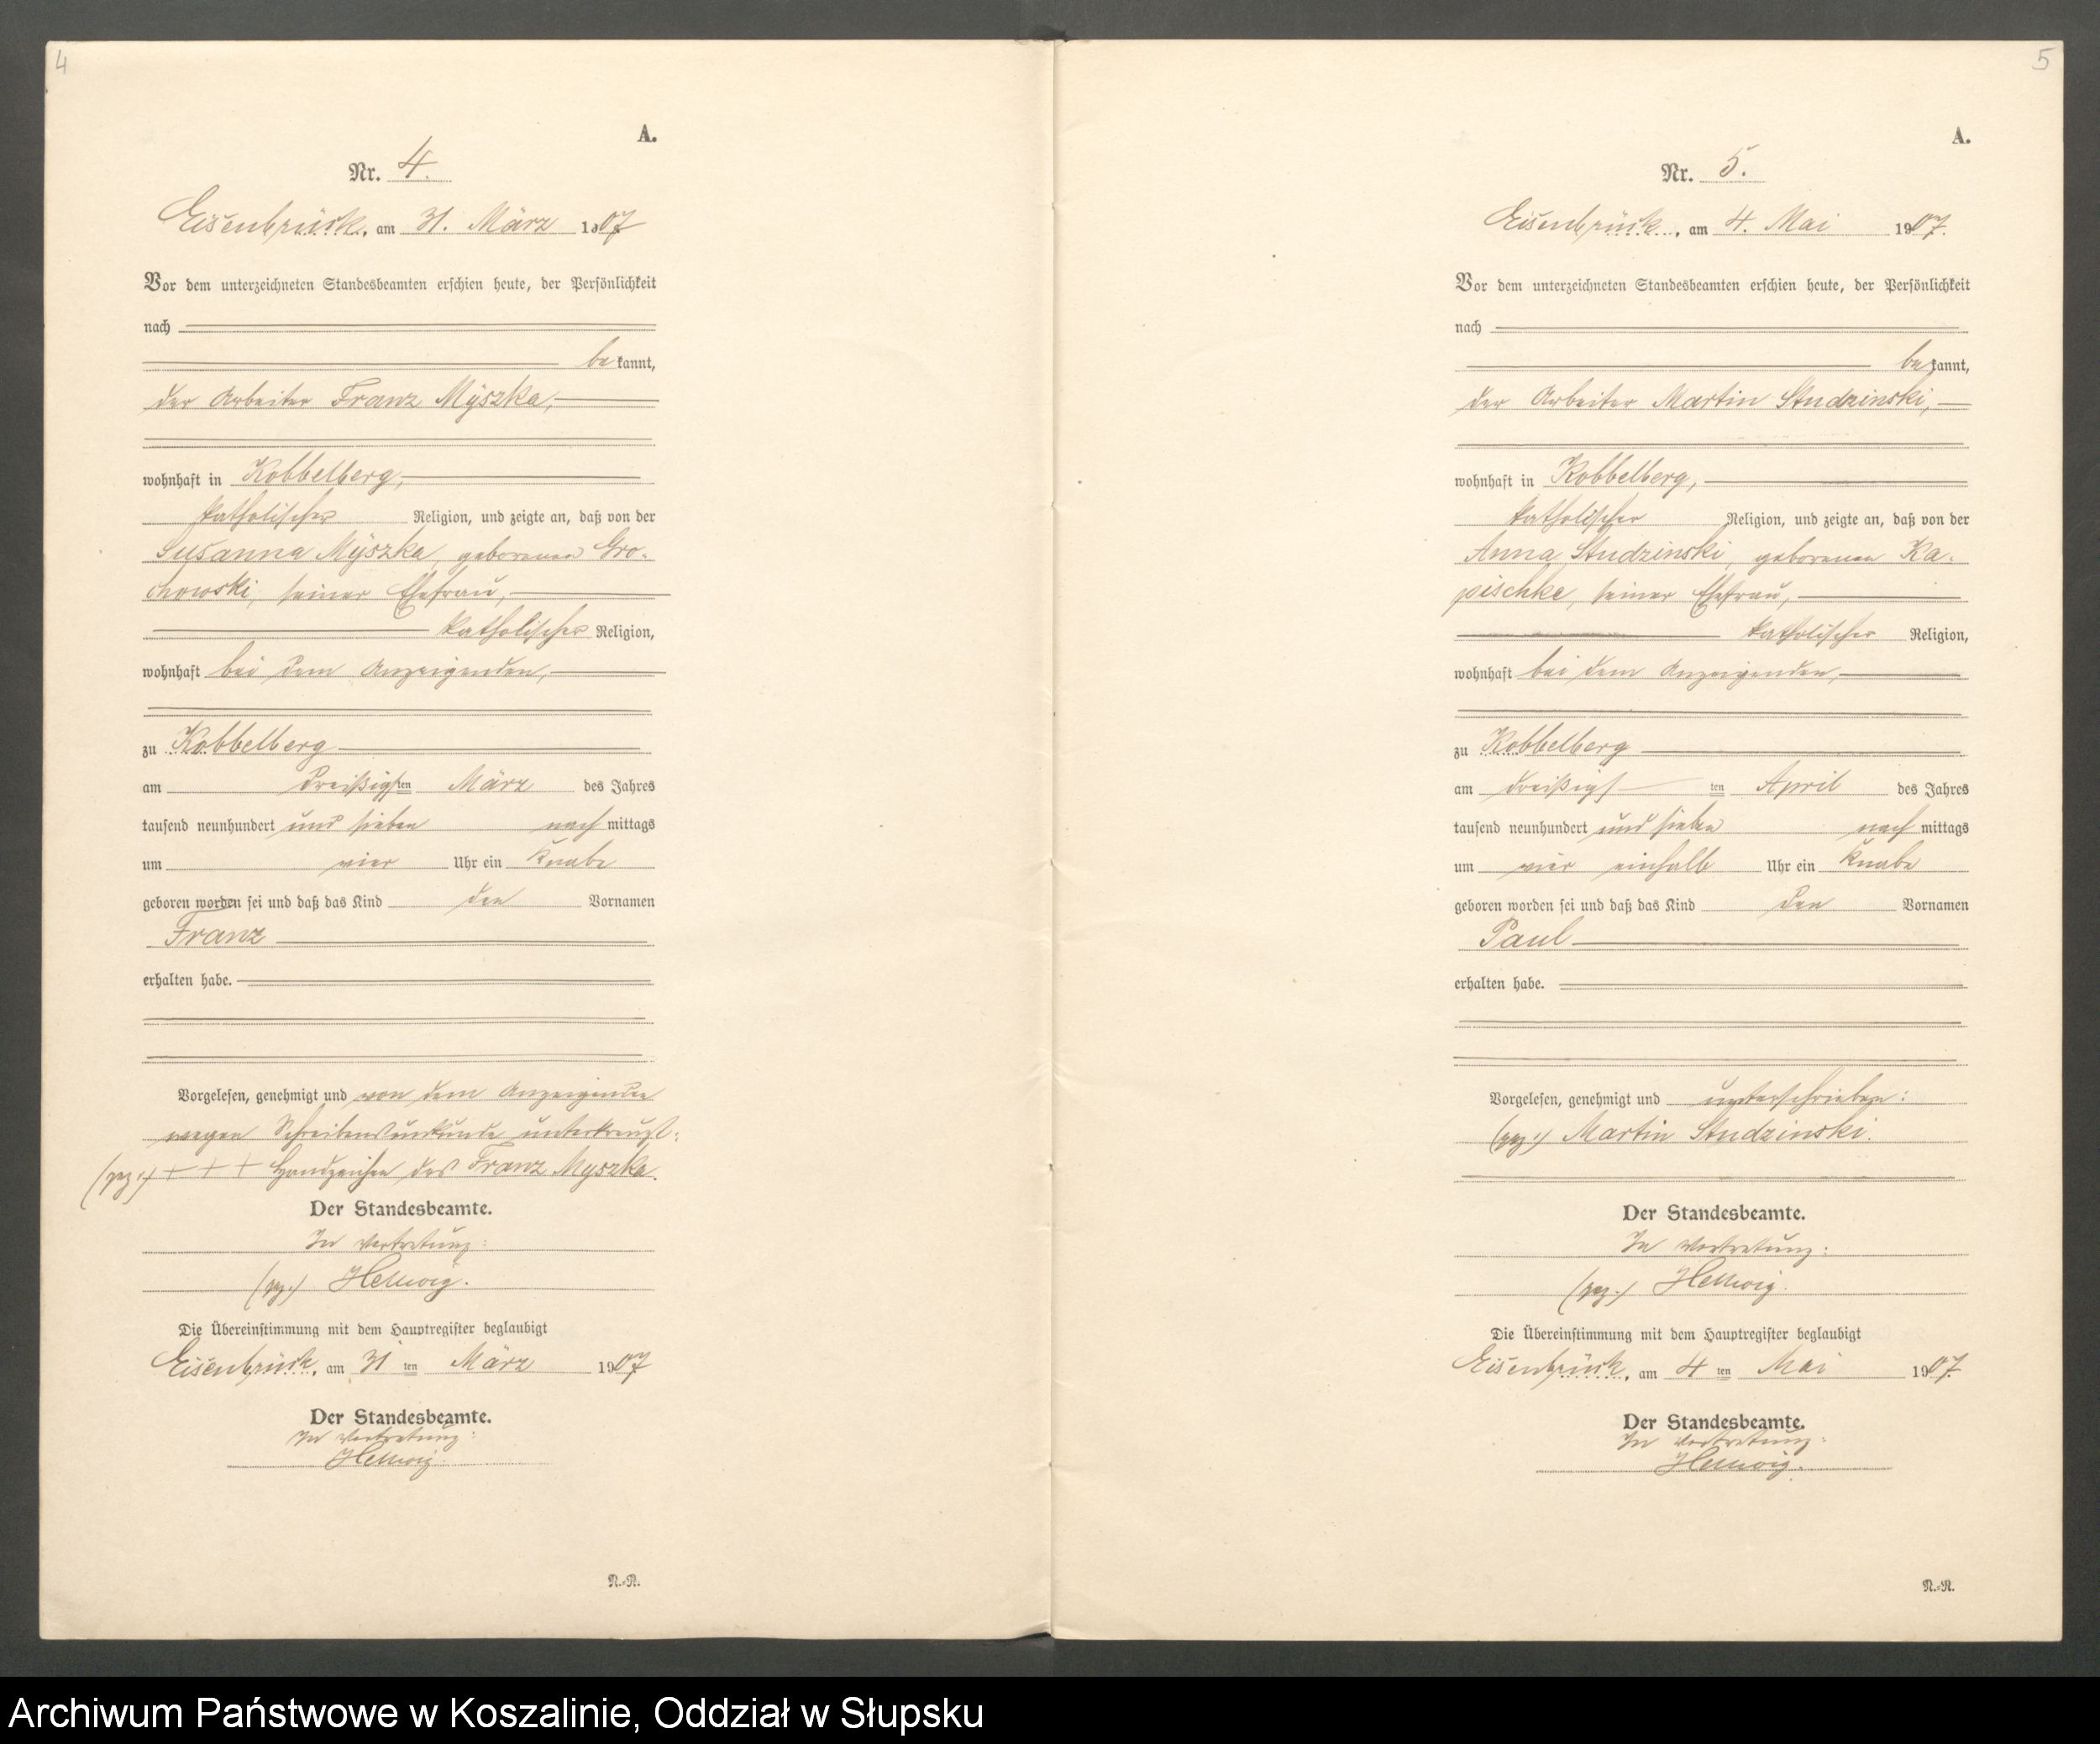 4
A.
Nr. 4.
Eisenbrück, am 31. März 1907
Vor dem unterzeichneten Standesbeamten erschien heute, der Persönlichkeit
nach
bekannt,
der Arbeiter Franz Myszka,
wohnhaft in Kobbelberg,
katholischer Religion, und zeigte an, daß von der
Susanna Myszka, geborenen Gro-
chowski, seiner Ehefrau,
katholischer Religion,
wohnhaft bei dem Anzeigenden,
zu Kobbelberg
am dreißigsten März des Jahres
tausend neunhundert und sieben nachmittags
um vier Uhr ein Knabe
geboren worden sei und daß das Kind den Vornamen
Franz
erhalten habe.
Vorgelesen, genehmigt und von dem Anzeigenden
wegen Schreibensunkunde unterkreuzt:
(gez.) + + + Handzeichen des Franz Myszka.
Der Standesbeamte.
In Vertretung:
(gez.) Hellwig.
Die Übereinstimmung mit dem Hauptregister beglaubigt
Eisenbrück, am 31 ten März 1907
Der Standesbeamte.
In Vertretung:
Hellwig.
N.-R.
5
A.
Nr. 5.
Eisenbrück, am 4. Mai 1907.
Vor dem unterzeichneten Standesbeamten erschien heute, der Persönlichkeit
nach
bekannt,
der Arbeiter Martin Studzinski,
wohnhaft in Kobbelberg,
katholischer Religion, und zeigte an, daß von der
Anna Studzinski, geborenen Ka-
pischke, seiner Ehefrau,
katholischer Religion,
wohnhaft bei dem Anzeigenden,
zu Kobbelberg
am dreißigsten April des Jahres
tausend neunhundert und sieben nachmittags
um vier einhalb Uhr ein Knabe
geboren worden sei und daß das Kind den Vornamen
Paul
erhalten habe.
Vorgelesen, genehmigt und unterschrieben:
(gez.) Martin Studzinski.
Der Standesbeamte.
In Vertretung:
(gez.) Hellwig.
Die Übereinstimmung mit dem Hauptregister beglaubigt
Eisenbrück, am 4 ten Mai 1907.
Der Standesbeamte.
In Vertretung:
Hellwig.
N.-R.
Archiwum Państwowe w Koszalinie, Oddział w Słupsku